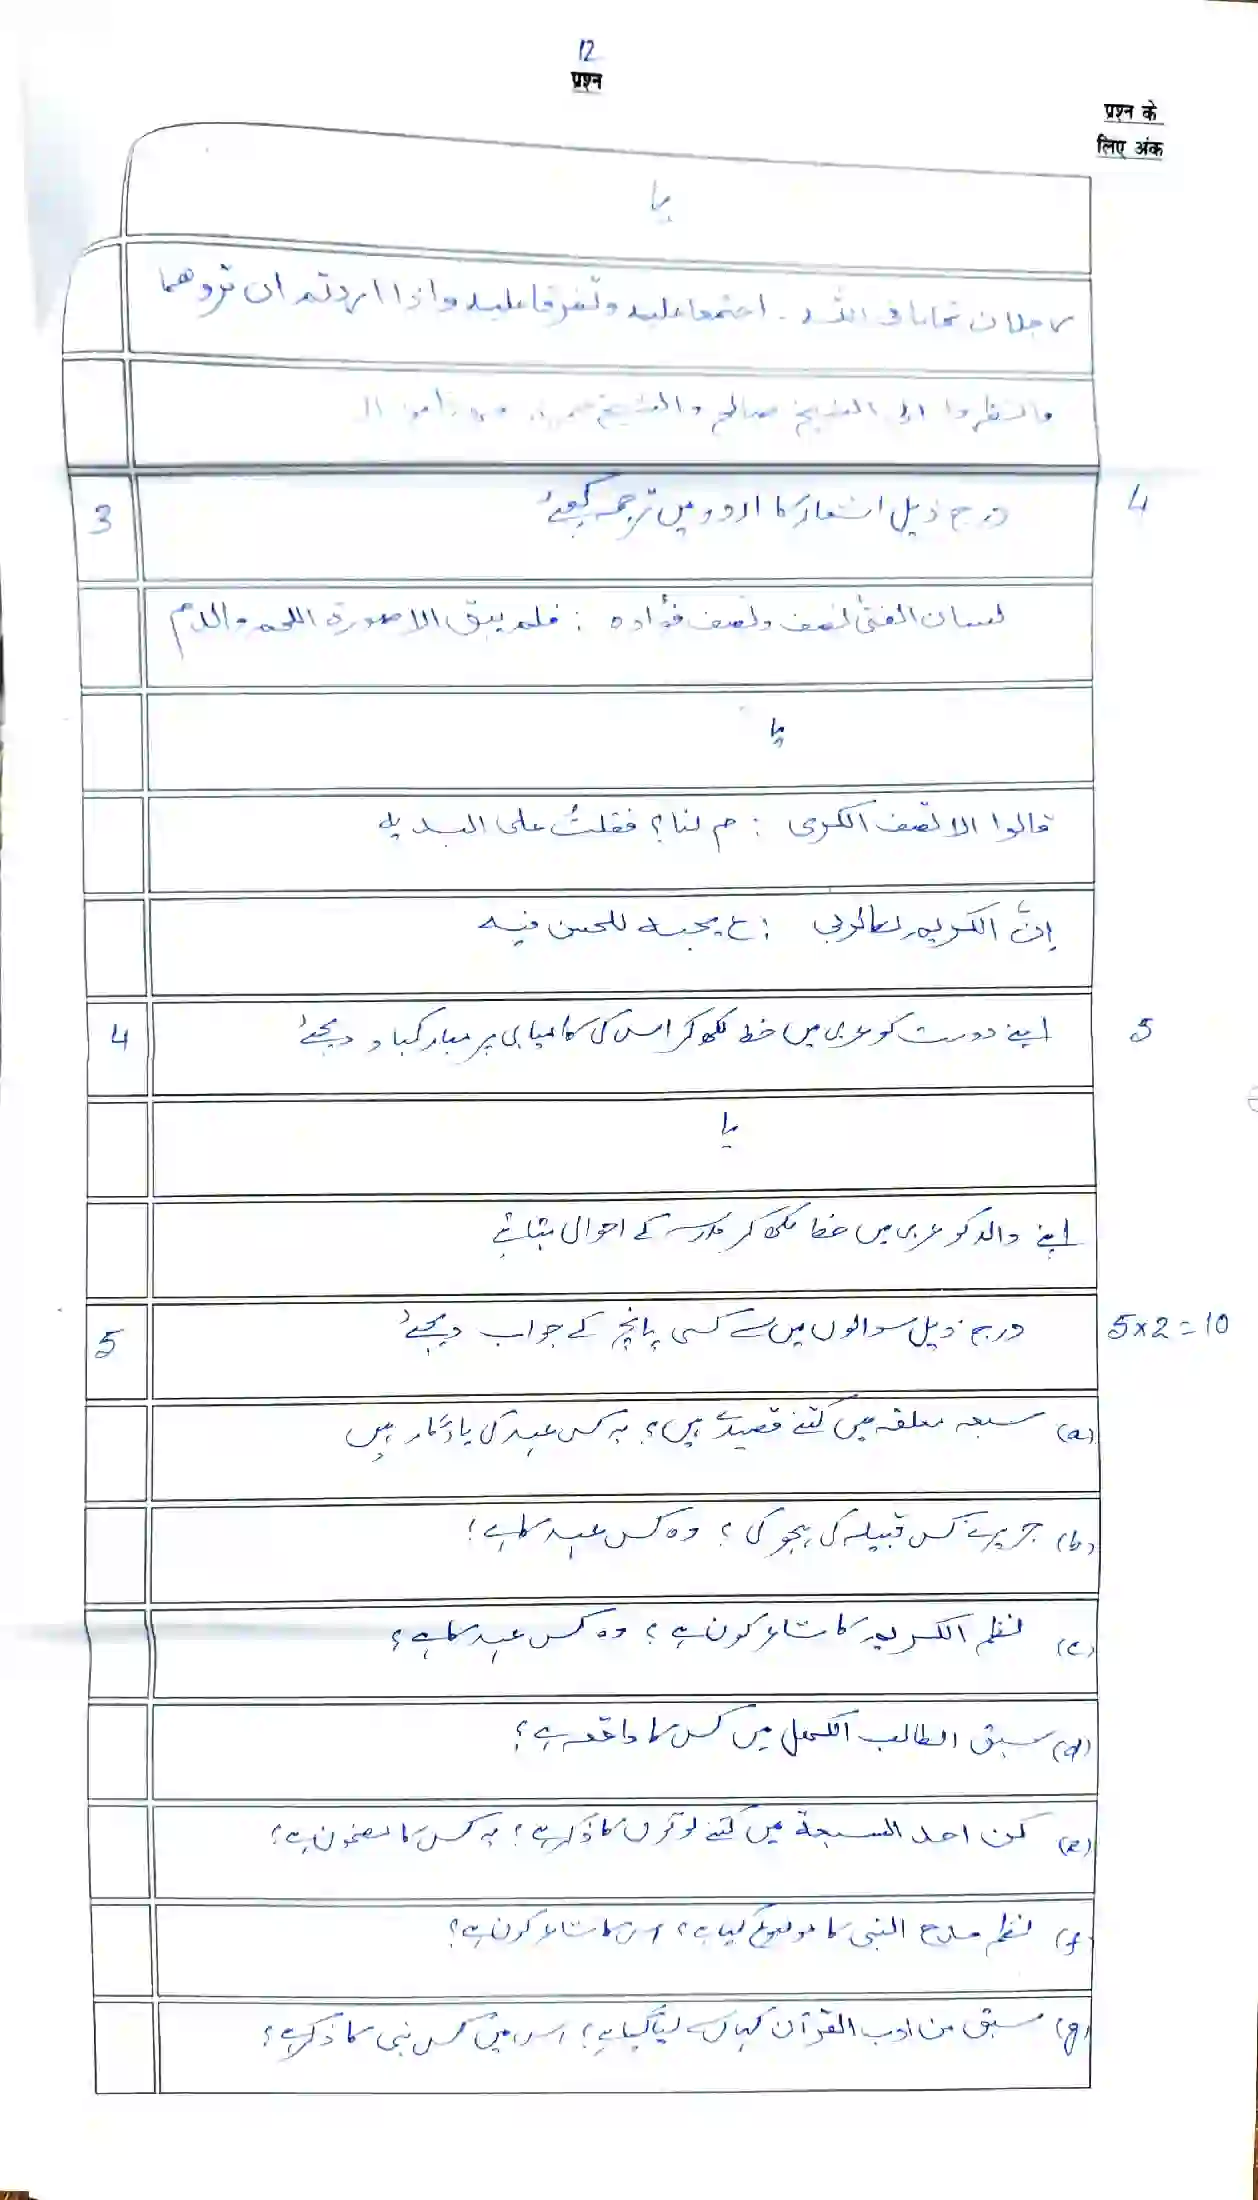 12
प्रश्न
प्रश्न के
लिए अंक
یا
رجلان تحابا فی اللہ۔ اجتمعا علیہ وتفرقا علیہ واذا اردتم ان تروهما
فانظروا الی الشیخ صالح والشیخ
3 درج ذیل اشعار کا اردو میں ترجمہ کیجئے 4
لسان الفتیٰ نصف ونصف فؤاده : فلم یبق الا صورة اللحم والدم
یا
قالوا الا تصف الکری : م لنا؟ فقلتُ علی البدیه
إنّ الکریم لکالربی : ع یحبه للحسن فیه
4 اپنے دوست کو عربی میں خط لکھ کر اس کی کامیابی پر مبارکباد دیجئے 5
یا
اپنے والد کو عربی میں خط لکھ کر مدرسہ کے احوال بتائیے
5 درج ذیل سوالوں میں سے کسی پانچ کے جواب دیجئے 5x2=10
(a) سبعہ معلقہ میں کتنے قصیدے ہیں؟ یہ کس عہد کی یادگار ہیں
(b) جریر نے کس قبیلہ کی ہجو کی؟ وہ کس عہد کا ہے؟
(c) نظم الکریم کا شاعر کون ہے؟ وہ کس عہد کا ہے؟
(d) سبق الطالب الکھل میں کس کا واقعہ ہے؟
(e) کن احد السبعة میں کتنے لوگوں کا ذکر ہے؟ یہ کس کا مضمون ہے؟
(f) نظم مدح النبی کا موضوع کیا ہے؟ اس کا شاعر کون ہے؟
(g) سبق من ادب القرآن کہاں سے لیا گیا ہے؟ اس میں کس نبی کا ذکر ہے؟